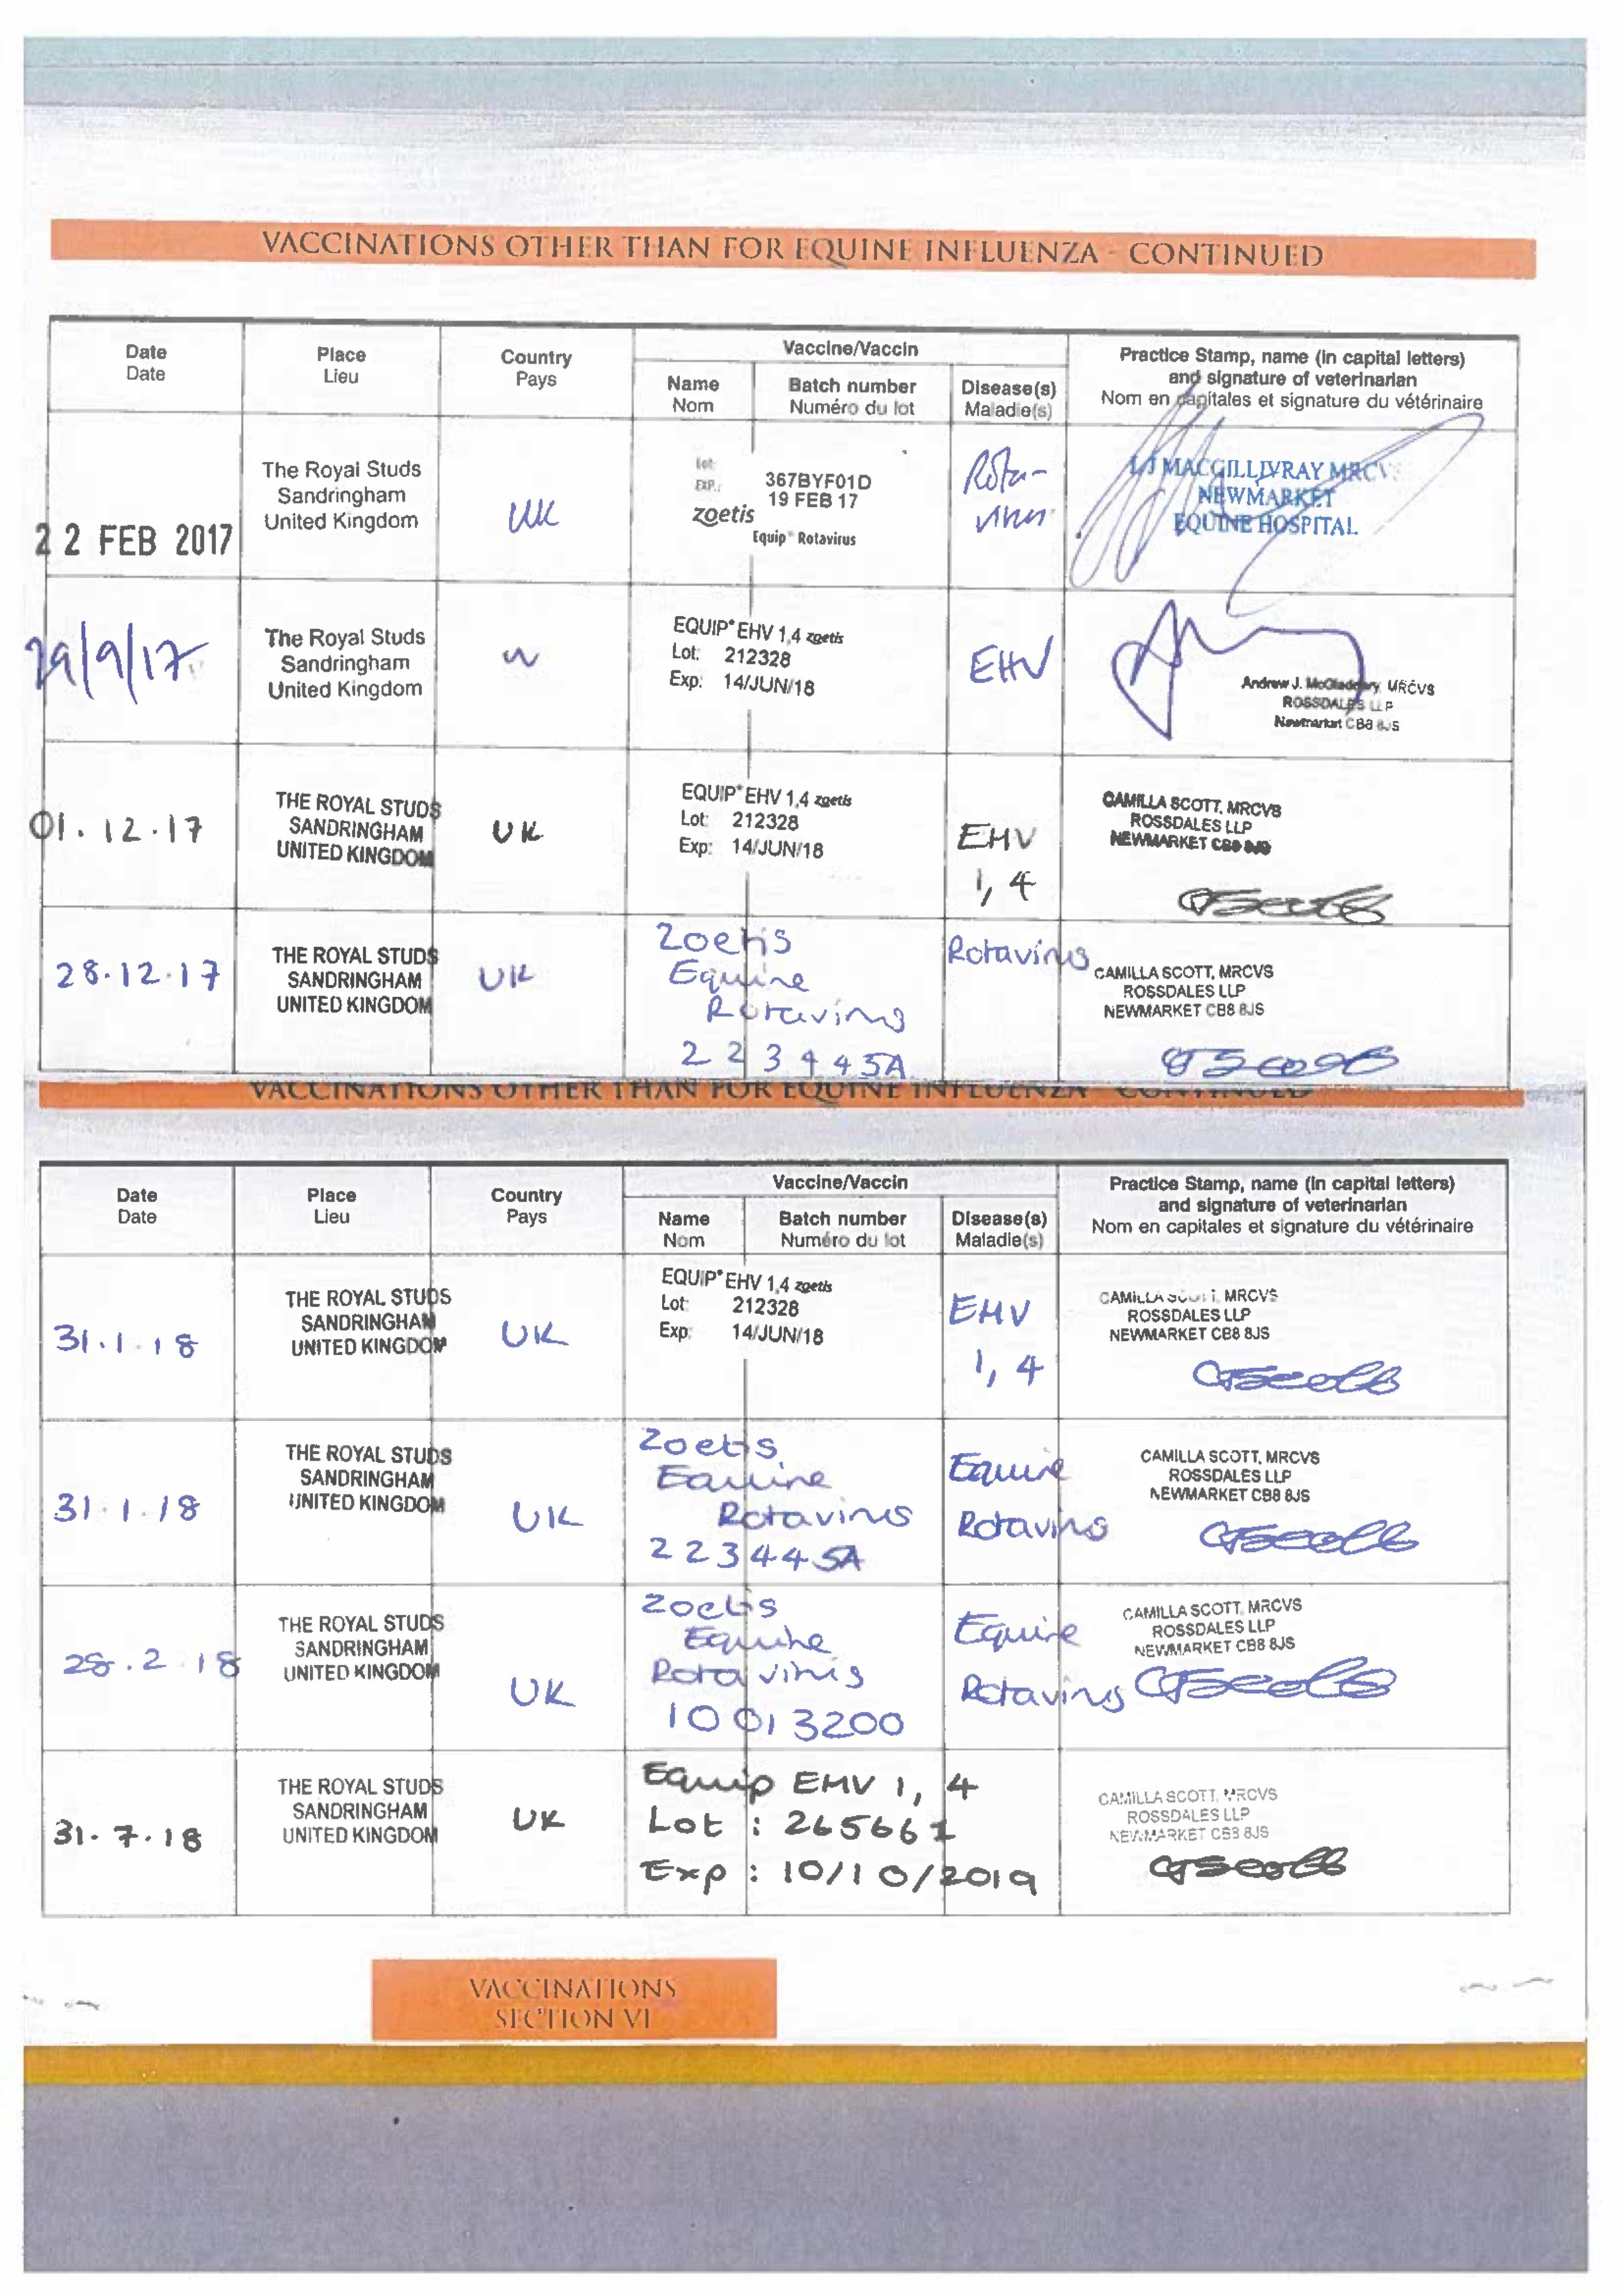 VACCINATIONS OTHER THAN FOR EQUINE INFLUENZA - CONTINUED
Date
Date
Place
Lieu
Country
Pays
Vaccine/Vaccin
Name
Nom
Batch number
Numéro du lot
Disease(s)
Maladie(s)
Practice Stamp, name (in capital letters)
and signature of veterinarian
Nom en capitales et signature du vétérinaire
22 FEB 2017
The Royal Studs
Sandringham
United Kingdom
UK
Lot:
EXP.:
367BYF01D
19 FEB 17
zoetis
Equip® Rotavirus
Rota-
virus
L J MACGILLIVRAY MRCVS
NEWMARKET
EQUINE HOSPITAL
29/9/17
The Royal Studs
Sandringham
United Kingdom
EQUIP® EHV 1,4 zoetis
Lot: 212328
Exp: 14/JUN/18
EHV
Andrew J. McGladdery, MRCVS
ROSSDALES LLP
Newmarket CB8 8JS
01.12.17
THE ROYAL STUDS
SANDRINGHAM
UNITED KINGDOM
UK
EQUIP® EHV 1,4 zoetis
Lot: 212328
Exp: 14/JUN/18
EHV
1, 4
CAMILLA SCOTT, MRCVS
ROSSDALES LLP
NEWMARKET CB8 8JS
28.12.17
THE ROYAL STUDS
SANDRINGHAM
UNITED KINGDOM
UK
Zoetis
Equine
Rotavirus
223445A
Rotavirus
CAMILLA SCOTT, MRCVS
ROSSDALES LLP
NEWMARKET CB8 8JS
VACCINATIONS OTHER THAN FOR EQUINE INFLUENZA - CONTINUED
Date
Date
Place
Lieu
Country
Pays
Vaccine/Vaccin
Name
Nom
Batch number
Numéro du lot
Disease(s)
Maladie(s)
Practice Stamp, name (in capital letters)
and signature of veterinarian
Nom en capitales et signature du vétérinaire
31.1.18
THE ROYAL STUDS
SANDRINGHAM
UNITED KINGDOM
UK
EQUIP® EHV 1,4 zoetis
Lot: 212328
Exp: 14/JUN/18
EHV
1, 4
CAMILLA SCOTT, MRCVS
ROSSDALES LLP
NEWMARKET CB8 8JS
31.1.18
THE ROYAL STUDS
SANDRINGHAM
UNITED KINGDOM
UK
Zoetis
Equine
Rotavirus
223445A
Equine
Rotavirus
CAMILLA SCOTT, MRCVS
ROSSDALES LLP
NEWMARKET CB8 8JS
28.2.18
THE ROYAL STUDS
SANDRINGHAM
UNITED KINGDOM
UK
Zoetis
Equine
Rotavirus
10013200
Equine
Rotavirus
CAMILLA SCOTT, MRCVS
ROSSDALES LLP
NEWMARKET CB8 8JS
31.7.18
THE ROYAL STUDS
SANDRINGHAM
UNITED KINGDOM
UK
Equip EHV 1, 4
Lot : 265661
Exp : 10/10/2019
CAMILLA SCOTT, MRCVS
ROSSDALES LLP
NEWMARKET CB8 8JS
VACCINATIONS
SECTION VI